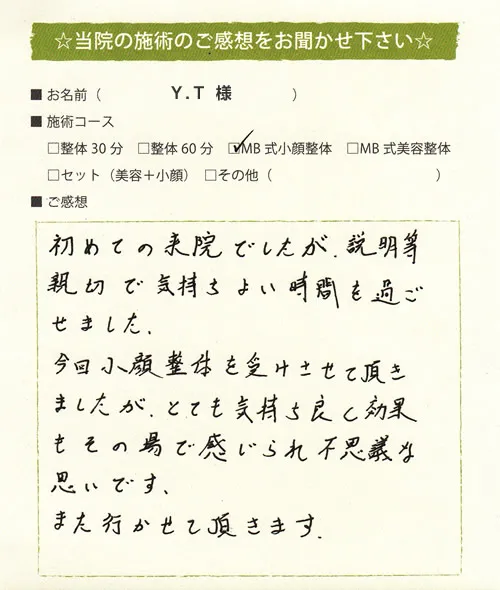 ☆当院の施術のご感想をお聞かせ下さい☆
■ お名前（ Y.T 様 ）
■ 施術コース
□整体 30 分 □整体 60 分 ☑MB 式小顔整体 □MB 式美容整体
□セット（美容＋小顔） □その他（ ）
■ ご感想
初めての来院でしたが、説明等
親切で気持ちよい時間を過ご
せました。
今回小顔整体を受けさせて頂き
ましたが、とても気持ち良く効果
もその場で感じられ不思議な
思いです。
また行かせて頂きます。